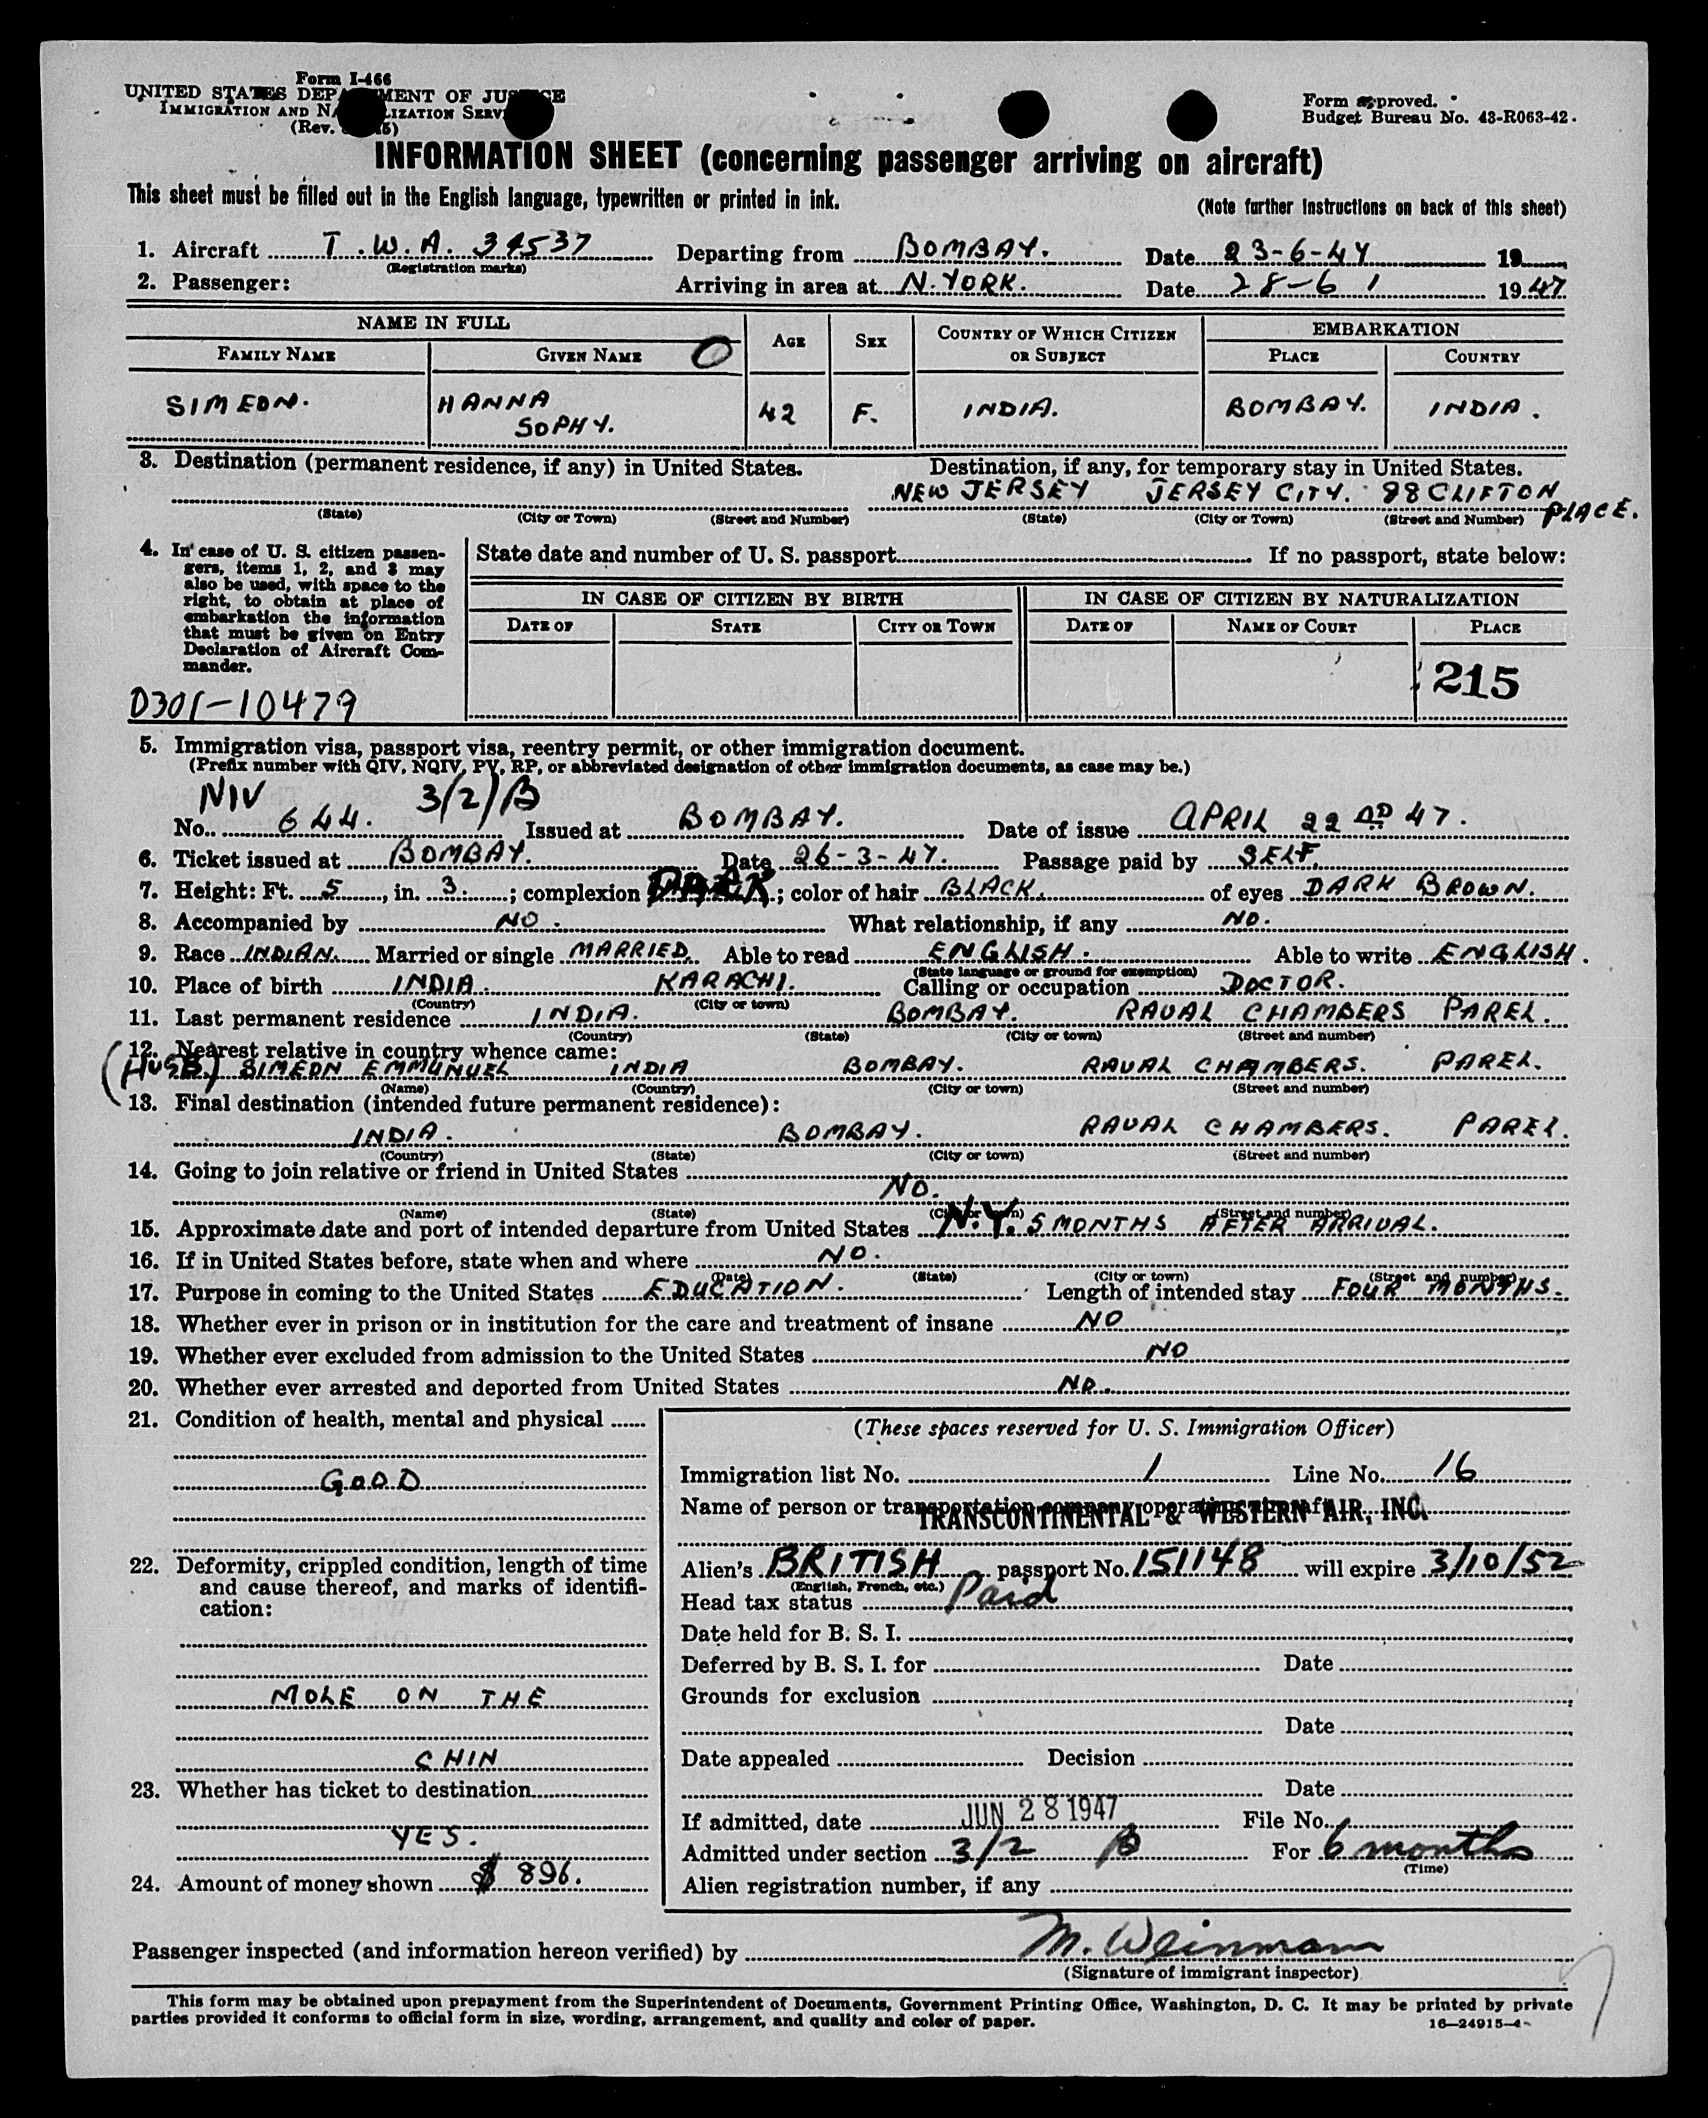 Form I-466
UNITED STATES DEPARTMENT OF JUSTICE
IMMIGRATION AND NATURALIZATION SERVICE
(Rev.
Form approved.
Budget Bureau No. 43-R063-42.
INFORMATION SHEET (concerning passenger arriving on aircraft)
This sheet must be filled out in the English language, typewritten or printed in ink.
(Note further instructions on back of this sheet)
1. Aircraft T.W.A. 34537 Departing from BOMBAY. Date 23-6-47 19
(Registration marks)
2. Passenger: Arriving in area at N. YORK. Date 28-6 1947
NAME IN FULL AGE SEX COUNTRY OF WHICH CITIZEN OR SUBJECT EMBARKATION
FAMILY NAME GIVEN NAME O PLACE COUNTRY
SIMEON. HANNA SOPHY. 42 F. INDIA. BOMBAY. INDIA.
3. Destination (permanent residence, if any) in United States. Destination, if any, for temporary stay in United States.
NEW JERSEY JERSEY CITY. 98 CLIFTON PLACE.
(State) (City or Town) (Street and Number) (State) (City or Town) (Street and Number)
4. In case of U. S. citizen passen-
gers, items 1, 2, and 3 may
also be used, with space to the
right, to obtain at place of
embarkation the information
that must be given on Entry
Declaration of Aircraft Com-
mander.
State date and number of U. S. passport If no passport, state below:
IN CASE OF CITIZEN BY BIRTH IN CASE OF CITIZEN BY NATURALIZATION
DATE OF STATE CITY OR TOWN DATE OF NAME OF COURT PLACE
215
0301-10479
5. Immigration visa, passport visa, reentry permit, or other immigration document.
(Prefix number with QIV, NQIV, PV, RP, or abbreviated designation of other immigration documents, as case may be.)
NIV 3/2/B
No. 644. Issued at BOMBAY. Date of issue APRIL 22ND 47.
6. Ticket issued at BOMBAY. Date 26-3-47. Passage paid by SELF.
7. Height: Ft. 5, in. 3.; complexion DARK; color of hair BLACK. of eyes DARK BROWN.
8. Accompanied by NO. What relationship, if any NO.
9. Race INDIAN. Married or single MARRIED. Able to read ENGLISH. Able to write ENGLISH.
(State language or ground for exemption)
10. Place of birth INDIA. KARACHI. Calling or occupation DOCTOR.
(Country) (City or town)
11. Last permanent residence INDIA. BOMBAY. RAVAL CHAMBERS PAREL.
(Country) (State) (City or town) (Street and number)
12. Nearest relative in country whence came:
(HUSB.) SIMEON EMMUNUEL INDIA BOMBAY. RAVAL CHAMBERS. PAREL.
(Name) (Country) (City or town) (Street and number)
13. Final destination (intended future permanent residence):
INDIA. BOMBAY. RAVAL CHAMBERS. PAREL.
(Country) (State) (City or town) (Street and number)
14. Going to join relative or friend in United States
NO.
(Name) (State) (City or town) (Street and number)
15. Approximate date and port of intended departure from United States N.Y. 5 MONTHS AFTER ARRIVAL.
16. If in United States before, state when and where NO.
(Date) (State) (City or town) (Street and number)
17. Purpose in coming to the United States EDUCATION. Length of intended stay FOUR MONTHS.
18. Whether ever in prison or in institution for the care and treatment of insane NO
19. Whether ever excluded from admission to the United States NO
20. Whether ever arrested and deported from United States NO.
21. Condition of health, mental and physical
GOOD
22. Deformity, crippled condition, length of time
and cause thereof, and marks of identifi-
cation:
MOLE ON THE
CHIN
23. Whether has ticket to destination
YES.
24. Amount of money shown $ 896.
(These spaces reserved for U. S. Immigration Officer)
Immigration list No. 1 Line No. 16
Name of person or transportation company operating aircraft
TRANSCONTINENTAL & WESTERN AIR, INC.
Alien's BRITISH passport No. 151148 will expire 3/10/52
(English, French, etc.)
Head tax status Paid
Date held for B. S. I.
Deferred by B. S. I. for Date
Grounds for exclusion
Date
Date appealed Decision
Date
If admitted, date JUN 28 1947 File No.
Admitted under section 3/2 B For 6 months
(Time)
Alien registration number, if any
Passenger inspected (and information hereon verified) by M. Weinmann
(Signature of immigrant inspector)
This form may be obtained upon prepayment from the Superintendent of Documents, Government Printing Office, Washington, D. C. It may be printed by private
parties provided it conforms to official form in size, wording, arrangement, and quality and color of paper.
16—24915-4